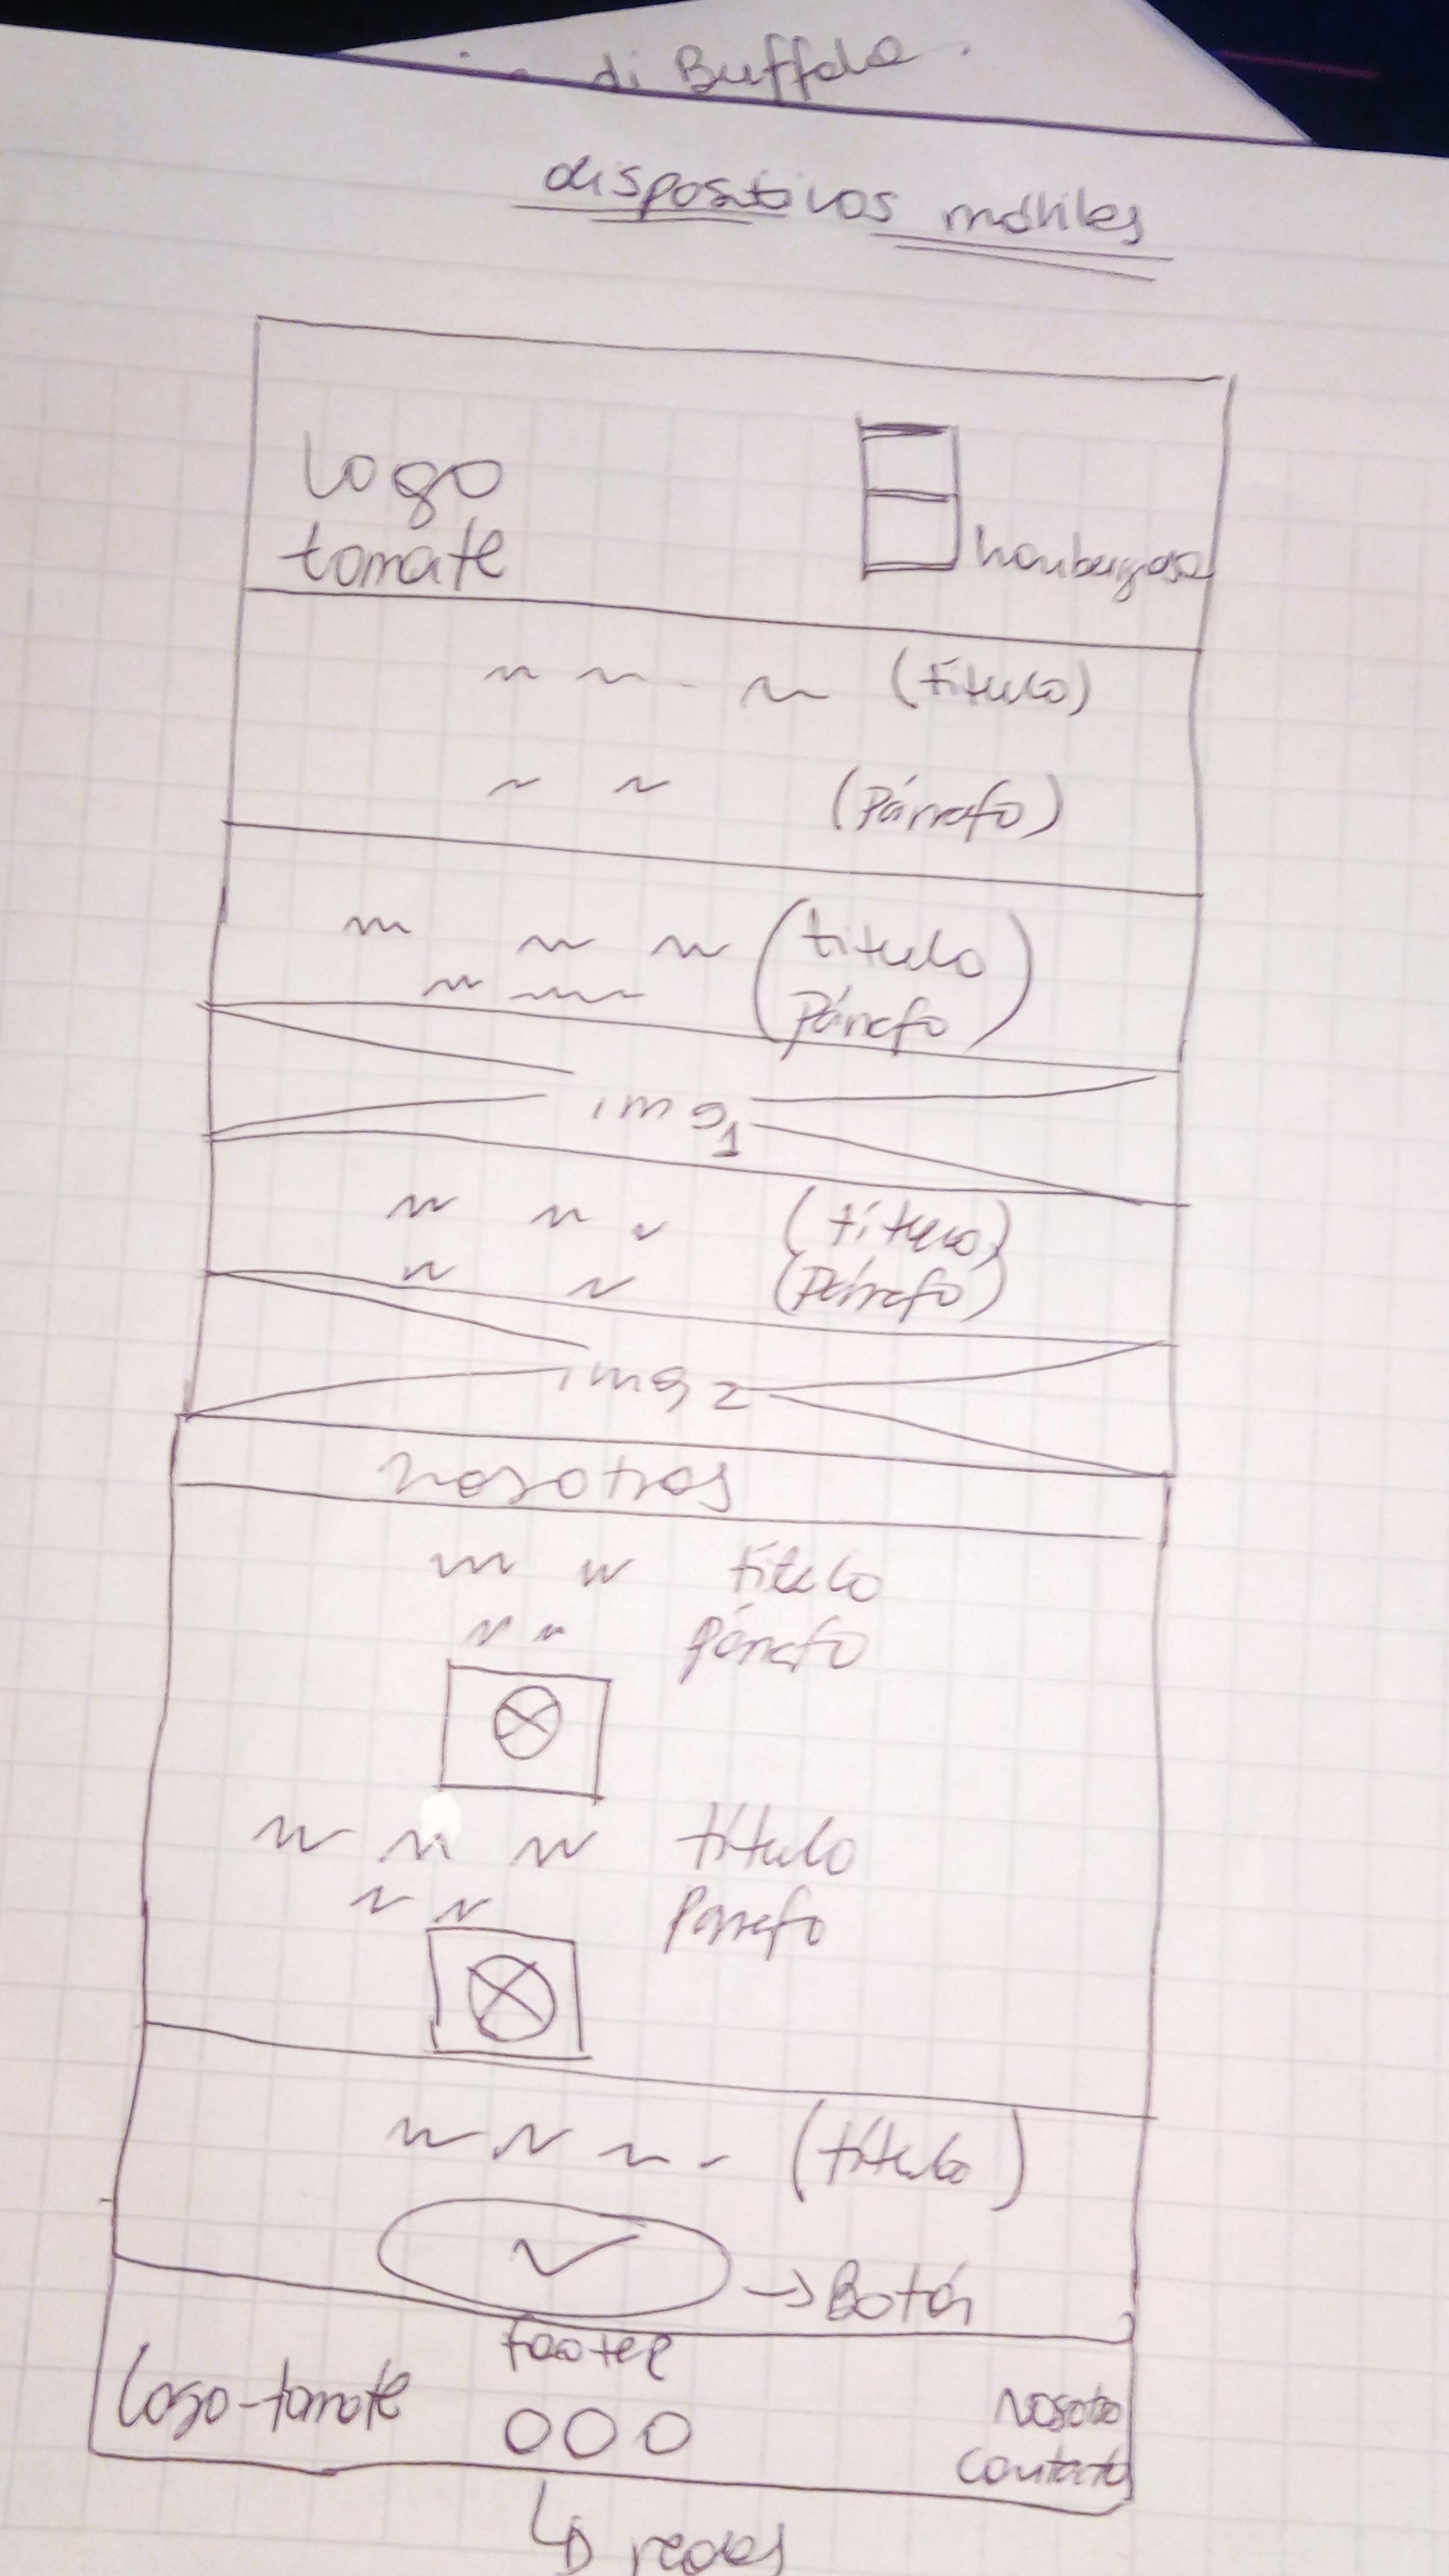 di Buffala.
dispositivos móviles
logo
tomate
hamburguesa
(título)
(Párrafo)
(título
Párrafo)
img 1
(título)
(Párrafo)
img 2
nosotros
título
Párrafo
título
Parrafo
(título)
→ Botón
footer
Logo-tomate
OOO
Nosotro
Contacto
redes